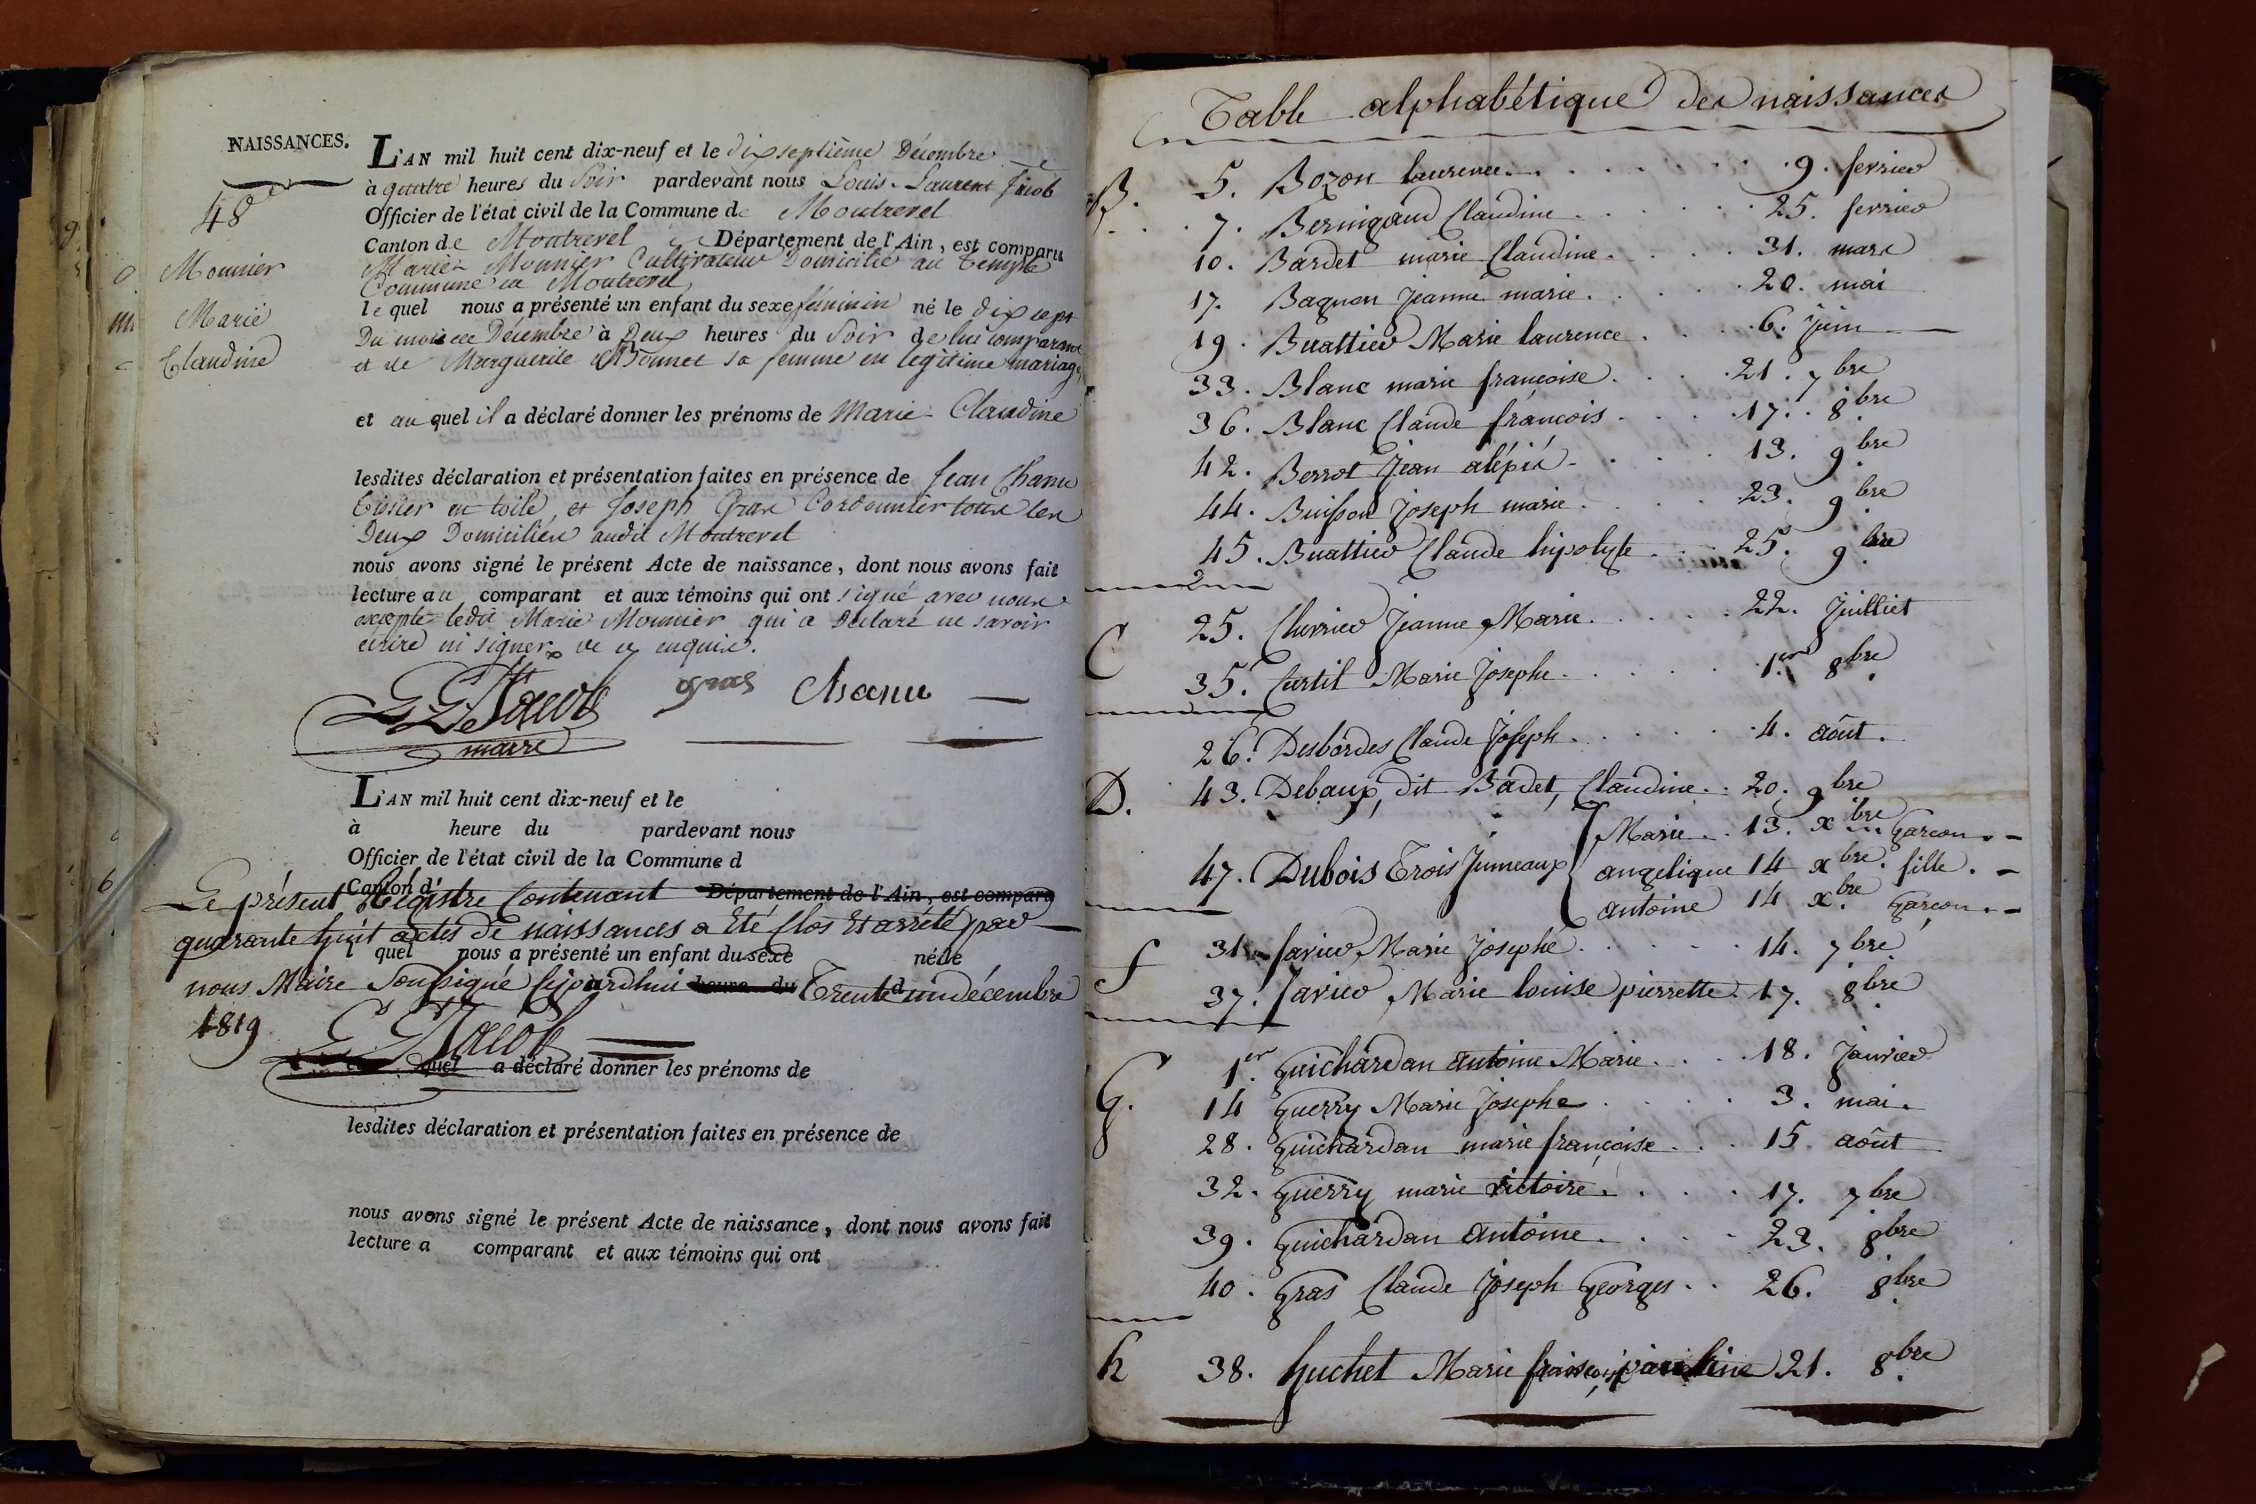 NAISSANCES.
48e
Mounier
Marie
Claudine
L'AN mil huit cent dix-neuf et le dix septième Décembre
à quatre heures du Soir pardevant nous Louis-Laurent Jacob
Officier de l'état civil de la Commune de Montrevel
Canton de Montrevel Département de l'Ain, est comparu
Marie Mounier Cultivateur Domicilié au Temple
Commune de Montrevel
lequel nous a présenté un enfant du sexe féminin né le dix sept
Du mois de Décembre à Deux heures du Soir de lui comparant
et de Marguerite Bonnet sa femme en légitime mariage,
et auquel il a déclaré donner les prénoms de Marie-Claudine
lesdites déclaration et présentation faites en présence de Jean Chanu
Tissier en toile, et Joseph Gras Cordonnier tous les
Deux Domiciliés audit Montrevel
nous avons signé le présent Acte de naissance, dont nous avons fait
lecture au comparant et aux témoins qui ont signé avec nous
excepté ledit Marie Mounier qui a Déclaré ne savoir
écrire ni signer de ce enquis.
Jacob gras Chanu
maire
L'AN mil huit cent dix-neuf et le
à heure du pardevant nous
Officier de l'état civil de la Commune d
Canton d' Département de l'Ain, est comparu
Le présent Régistre Contenant
quarante huit actes de naissances a Eté Clos Et arrêté par
quel nous a présenté un enfant du sexe né le
nous Maire Soussigné Cejourd'hui heure du Trente d un décembre
1819
Jacob
quel a déclaré donner les prénoms de
lesdites déclaration et présentation faites en présence de
nous avons signé le présent Acte de naissance, dont nous avons fait
lecture a comparant et aux témoins qui ont
Table alphabétique des naissances
B. 5. Bozon laurence 9. fevrier
7. Beringaud Claudine 25. fevrier
10. Bardet marie Claudine 31. mars
17. Bagnon Jeanne marie 20. mai
19. Buattier Marie laurence 6. Juin
33. Blanc marie françoise 21. 7bre
36. Blanc Claude françois 17. 8bre
42. Berrot Jean aléxis 13. 9bre
44. Buisson Joseph marie 23. 9bre
45. Buattier Claude hipolyte 25. 9bre
C 25. Chevrier Jeanne Marie 22. Juilliet
35. Curtil Marie Josephe 1er 8bre
26. Desbordes Claude Joseph 4. août.
D. 43. Debaux, dit Badet, Claudine 20. 9bre
Marie 13. xbre Garçon
47. Dubois Trois Jumeaux angelique 14 xbre. fille.
antoine 14 xbre Garçon
f 31 favier Marie Josephe 14. 7bre
37. favier Marie louise pierrette 17. 8bre
G. 1er Guichardan antoine Marie 18. Janvier
14 Guerry Marie Josephe 3. mai.
28. Guichardan marie françoise 15 août
32. Guerry marie victoire 17. 7bre
39. Guichardan antoine 23. 8bre
40. Gras Claude Joseph Georges 26. 8bre
h 38. huchet Marie françoise pauline 21. 8bre